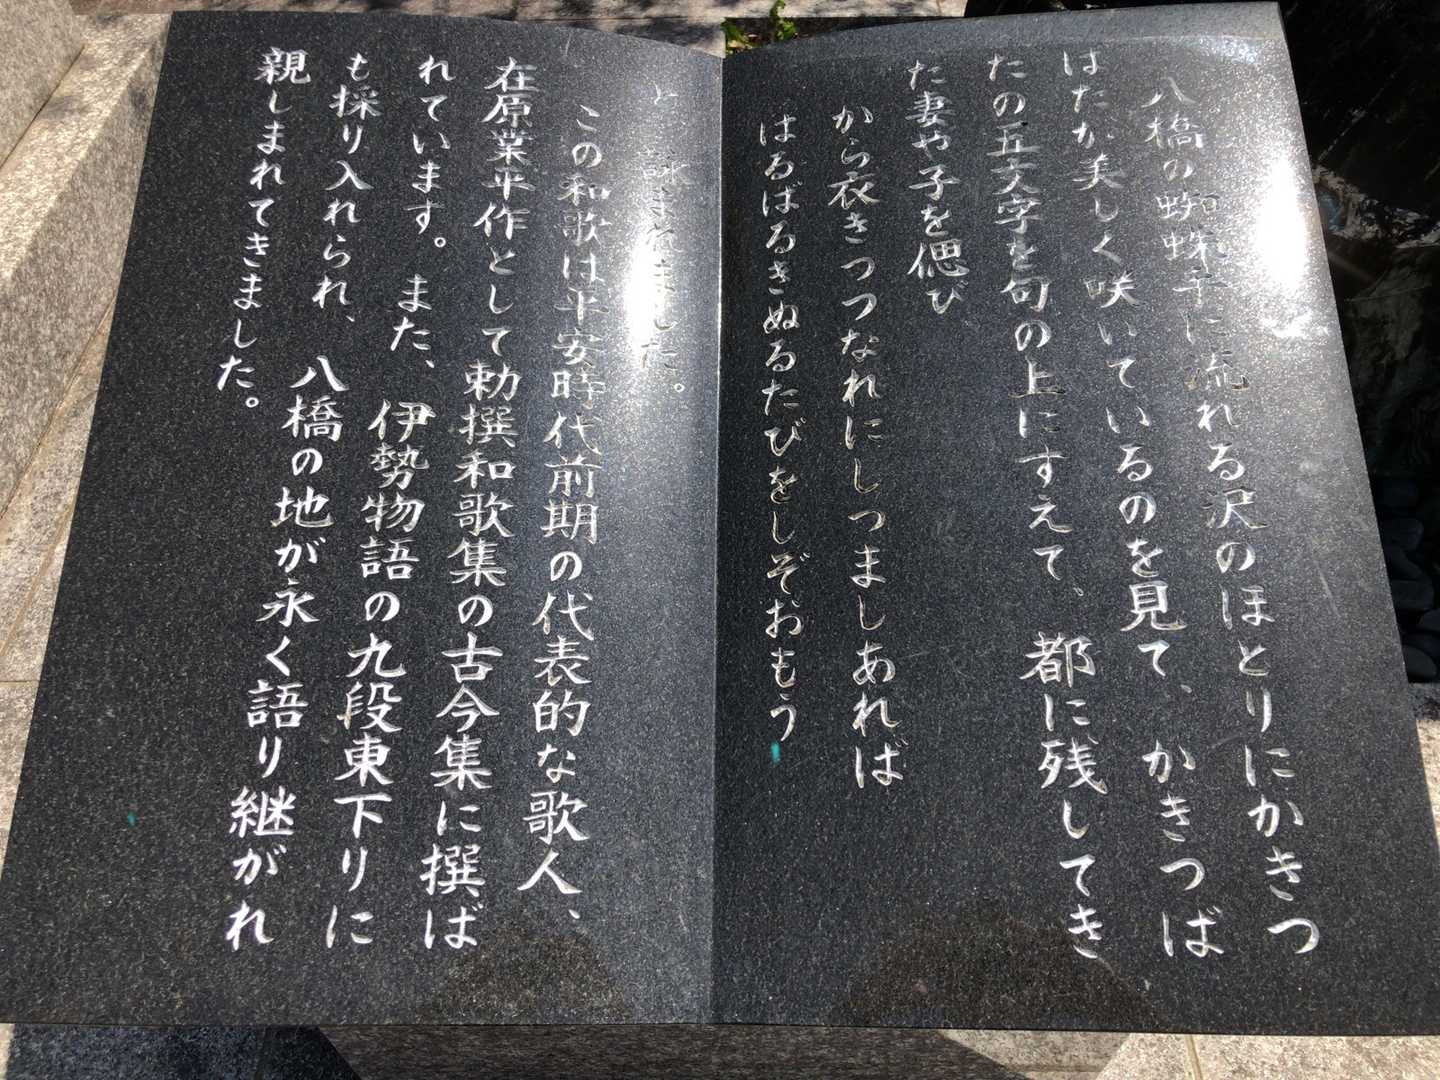 八橋の蜘蛛手に流れる沢のほとりにかきつ
ばたが美しく咲いているのを見て、かきつば
たの五文字を句の上にすえて、都に残してき
た妻や子を偲び
から衣きつつなれにしつましあれば
はるばるきぬるたびをしぞおもう
と、詠まれました。
この和歌は平安時代前期の代表的な歌人、
在原業平作として勅撰和歌集の古今集に撰ば
れています。また、伊勢物語の九段東下りに
も採り入れられ、八橋の地が永く語り継がれ
親しまれてきました。